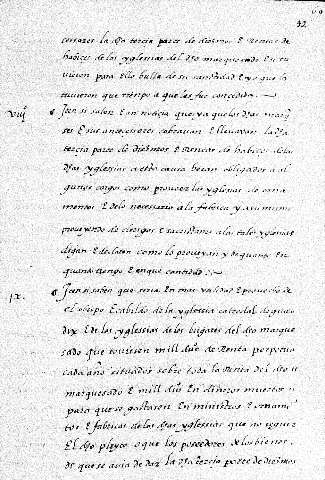 52
cerrazes la dha tercia parte de diezmos E Rentas de
habizes de los yglesias del dho marquesado En tu
vieron para Ello bulla de su santidad E yo que la
tuvieron que tiempo a que les fue concedida
viij Iten si saben E an noticia que ya que los dhos marq̄
ses E sus antecesores cobravan E llevavan la dha
tercia parte de diezmos E Rentas de habizes delas
dhas yglesias a esta causa heran obligados a al
gunos cargos como proveer las yglesias de orna
mentos E de lo necesario a la fabrica y asimismo
proveyendo de clerigos E sacristanes a las tales yglesias
digan E declaren como lo proveyan y de quanto En
quanto tiempo E en que cantidad
ix. Iten si saben que seria En mas validad E provecho de
el obispo E cabildo de la yglesia catedral de guad
dix E de los yglesias de los lugares del dho marque
sado que tuviesen mill dus de Renta perpetua
cada año situados sobre toda la Renta del dho
marquesado E mill dus En dineros muertos
para que se gastaran En ministros E ornamē
tos E fabricas de las dhas yglesias que no seguir
El dho pleyto o que los poseedores de los bienes
de que se avia de dez la dha tercia parte de diezmos